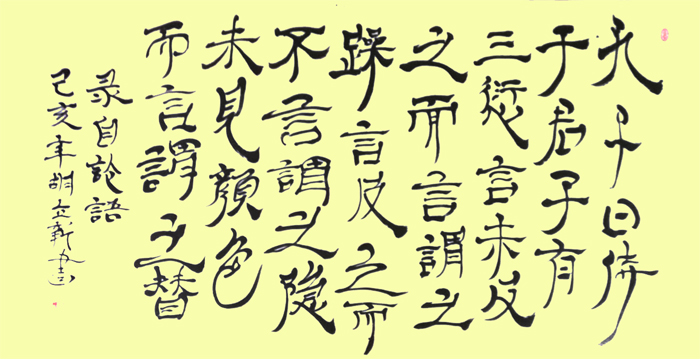 孔子曰侍
于君子有
三愆言未及
之而言謂之
躁言及之而
不言謂之隐
未見顏色
而言謂之瞽
录自論語
己亥年胡立新书